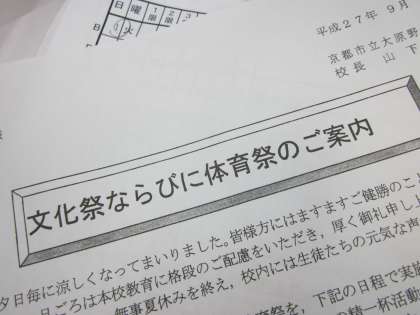 日 曜 1限 2限 3
日 火
平成27年 9月
京都市立大原野
校長 山下
文化祭ならびに体育祭のご案内
夕日毎に涼しくなってまいりました。皆様方にはますますご健勝のこと
日ごろは本校教育に格段のご配慮をいただき、厚く御礼申し上
無事夏休みを終え、校内には生徒たちの元気な声
育祭を、下記の日程で実施
の精一杯活動